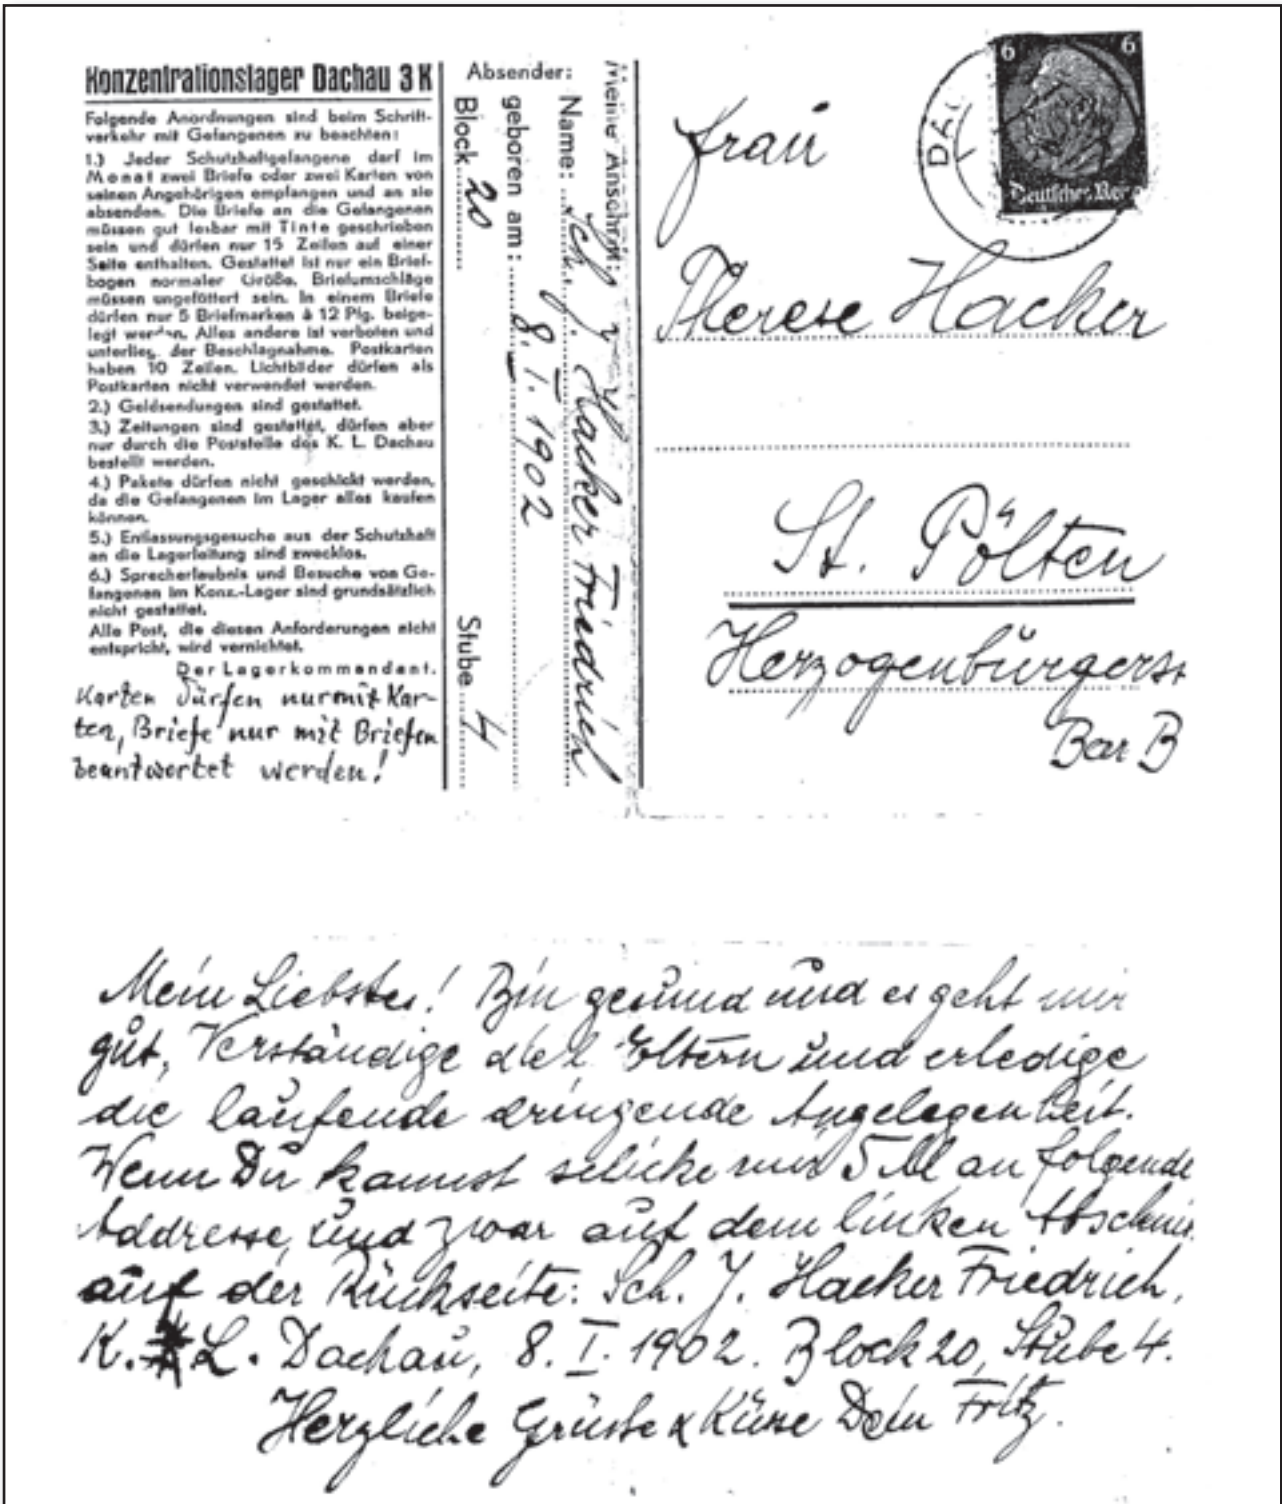 Konzentrationslager Dachau 3 K
Folgende Anordnungen sind beim Schrift-
verkehr mit Gefangenen zu beachten:
1.) Jeder Schutzhaftgefangene darf im
Monat zwei Briefe oder zwei Karten von
seinen Angehörigen empfangen und an sie
absenden. Die Briefe an die Gefangenen
müssen gut lesbar mit Tinte geschrieben
sein und dürfen nur 15 Zeilen auf einer
Seite enthalten. Gestattet ist nur ein Brief-
bogen normaler Größe. Briefumschläge
müssen ungefüttert sein. In einem Briefe
dürfen nur 5 Briefmarken à 12 Pfg. beige-
legt werden. Alles andere ist verboten und
unterliegt der Beschlagnahme. Postkarten
haben 10 Zeilen. Lichtbilder dürfen als
Postkarten nicht verwendet werden.
2.) Geldsendungen sind gestattet.
3.) Zeitungen sind gestattet, dürfen aber
nur durch die Poststelle des K. L. Dachau
bestellt werden.
4.) Pakete dürfen nicht geschickt werden,
da die Gefangenen im Lager alles kaufen
können.
5.) Entlassungsgesuche aus der Schutzhaft
an die Lagerleitung sind zwecklos.
6.) Sprecherlaubnis und Besuche von Ge-
fangenen im Konz.-Lager sind grundsätzlich
nicht gestattet.
Alle Post, die diesen Anforderungen nicht
entspricht, wird vernichtet.
Der Lagerkommandant.
Karten dürfen nur mit Kar-
ten, Briefe nur mit Briefen
beantwortet werden!
Absender:
Meine Anschrift:
Name: Sch. J. Hacker Friedrich
geboren am: 8. I. 1902
Block 20 Stube 4
6 6
Deutsches Reich
DAC
Frau
Therese Hacker
St. Pölten
Herzogenbürgerst
Bar B
Mein Liebstes! Bin gesund und es geht mir
gut, Verständige die Eltern und erledige
die laufende dringende Angelegenheit.
Wenn Du kannst schicke mir 5 M an folgende
Addresse, und zwar auf dem linken Abschnit
auf der Rückseite: Sch. J. Hacker Friedrich,
K. L. Dachau, 8. I. 1902. Block 20, Stube 4.
Herzliche Grüsse & Küsse Dein Fritz.